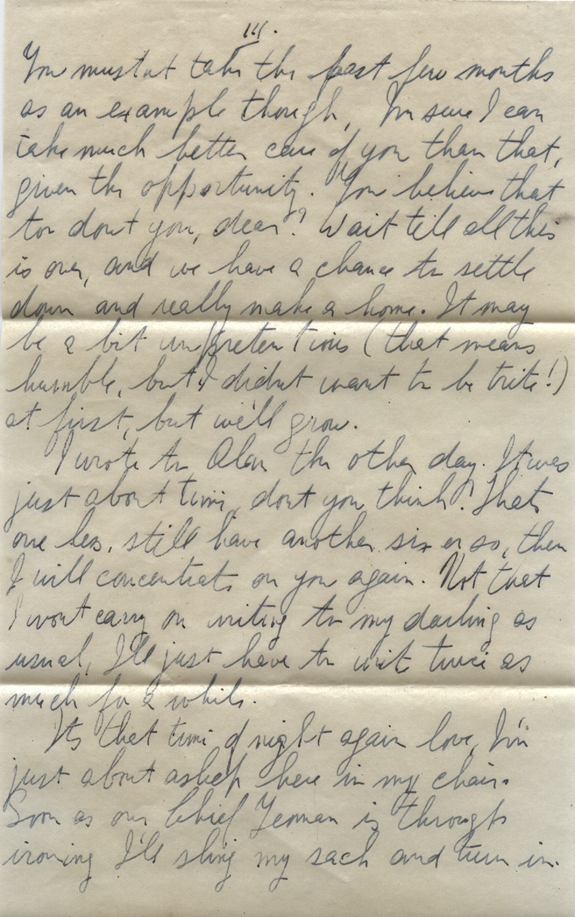 III.
You mustnt take the past few months
as an example though, Im sure I can
take much better care of you than that,
given the opportunity. You believe that
too dont you, dear? Wait till all this
is over, and we have a chance to settle
down and really make a home. It may
be a bit unpretentious (that means
humble, but I didnt want to be trite!)
at first, but we'll grow.
I wrote to Alan the other day. It was
just about time, dont you think? Thats
one less, still have another six or so, then
I will concentrate on you again. Not that
I wont carry on writing to my darling as
usual, I'll just have to write twice as
much for a while.
Its that time of night again love, I'm
just about asleep here in my chair.
Soon as our Chief Yeoman is through
ironing I'll sling my sack and turn in.